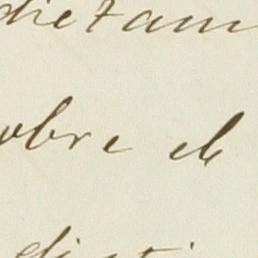 dictam
obre el